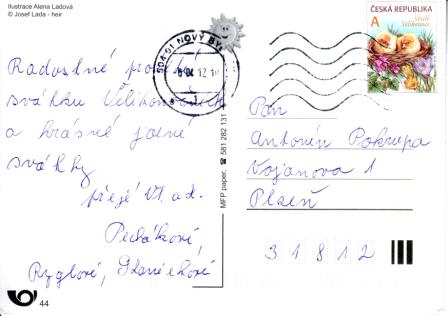 Ilustrace Alena Ladová
© Josef Lada - heir
504 01 NOVÝ BY
ČESKÁ REPUBLIKA
A
Veselé
Velikonoce
Radostné
svátku Velikonočních
a krásné jarné
svátky
přeje Vl. ad.
Pecháčkové,
Ryglové,
MFP paper, ☎ 581 282 131
Pan
Antonín Pokrupa
Vojanova 1
Plzeň
31812
44